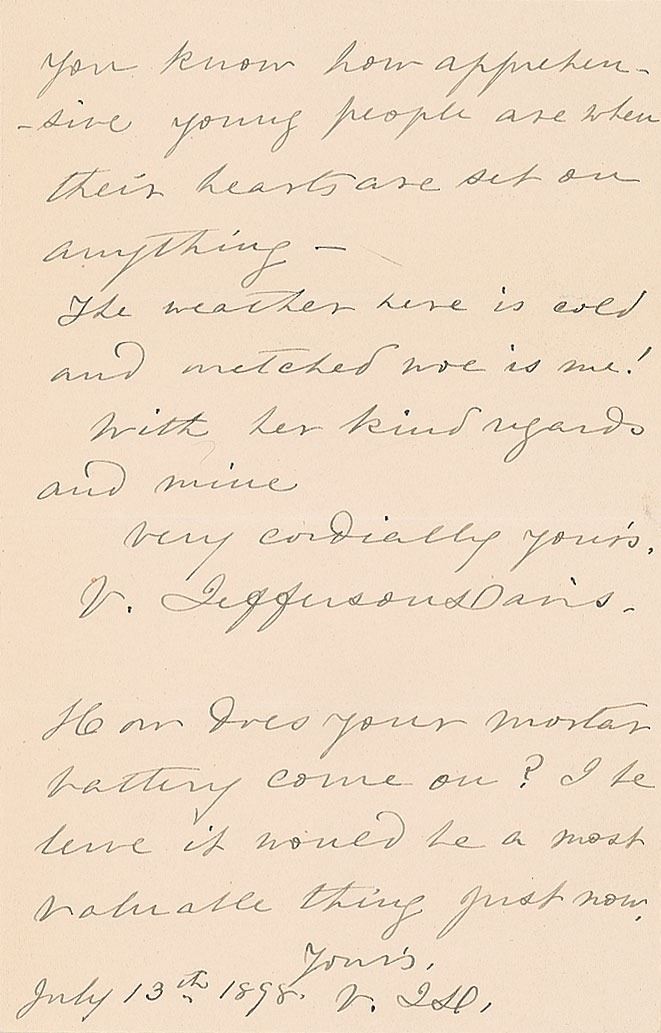 you know how apprehen-
-sive young people are when
their hearts are set on
anything —
The weather here is cold
and wretched woe is me!
With her kind regards
and mine
very cordially yours,
V. Jefferson Davis.
How does your mortar
battery come on? I be
leive it would be a most
valuable thing just now.
Yours,
July 13th 1898. V. JD,